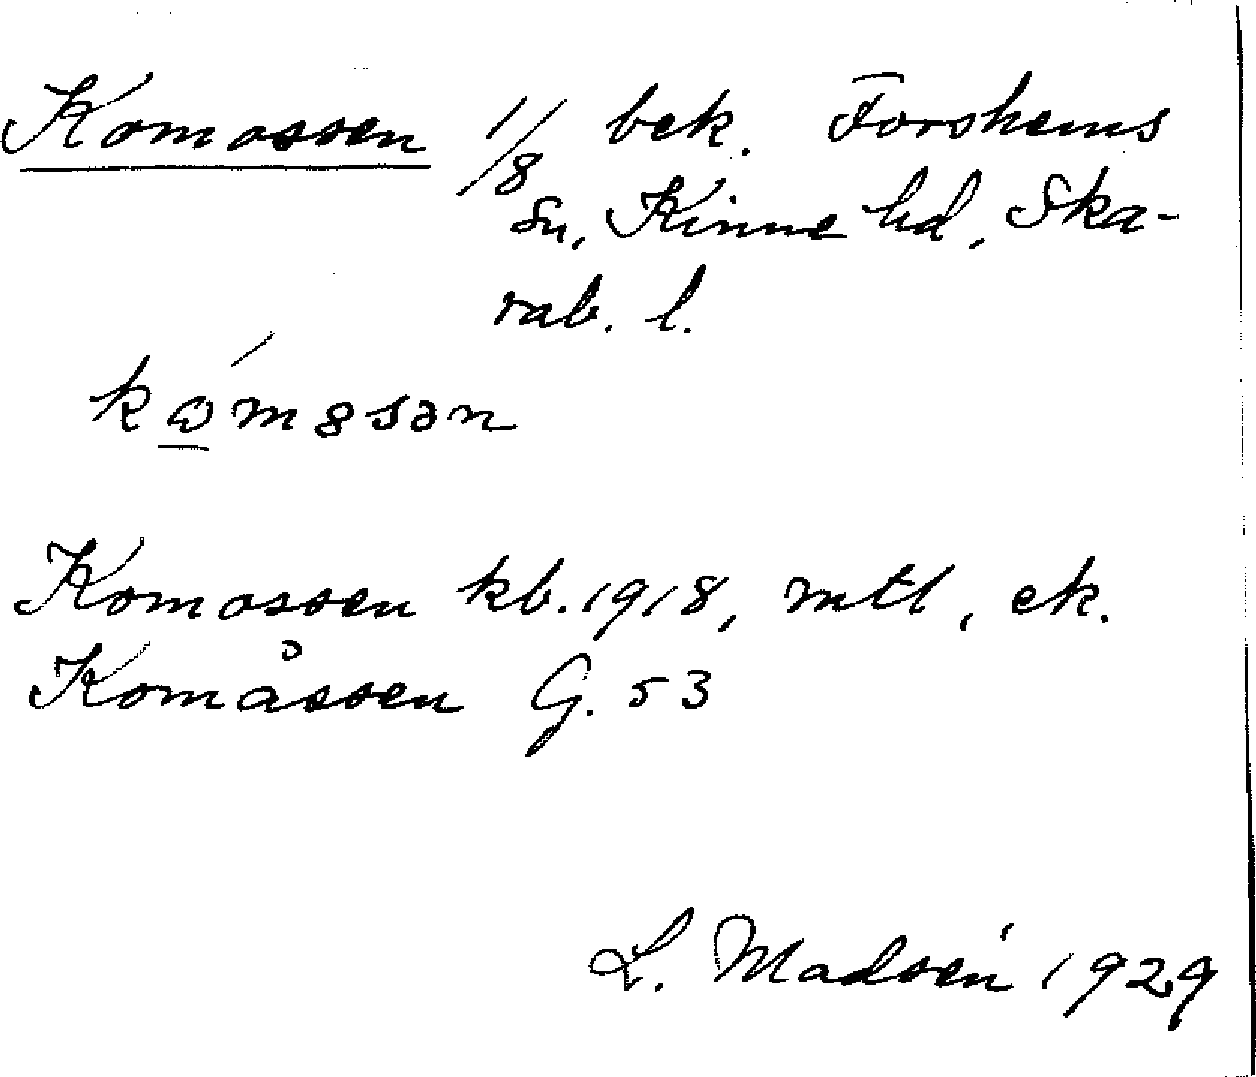 Komossen 1/8 bek. Forshems
sn, Kinne hd, Ska-
rab. l.
Komossen kb. 1918, mtl, ek.
Komåssen G. 53
L. Madsén 1929